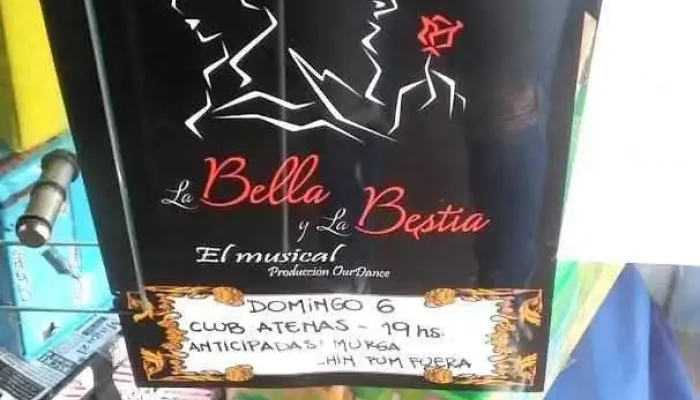 La Bella
y La Bestia
El musical
Producción OurDance
DOMINGO 6
CLUB ATENAS - 19 hs.
ANTICIPADAS: MURGA
HIN PUM FUERA